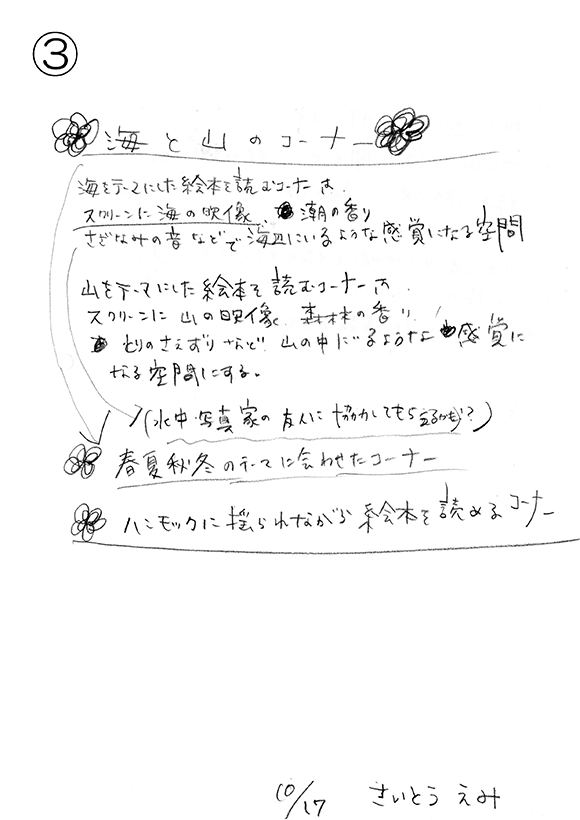 ③
海と山のコーナー
海をテーマにした絵本を読むコーナーは、
スクリーンに海の映像、潮の香り
さざなみの音などで海辺にいるような感覚になる空間
山をテーマにした絵本を読むコーナーは、
スクリーンに山の映像、森林の香り、
とりのさえずりなど山の中にいるような感覚に
なる空間にする。
(水中写真家の友人に協力してもらえるかも?)
春夏秋冬のテーマに合わせたコーナー
ハンモックに揺られながら絵本を読めるコーナー
10/17 さいとう えみ